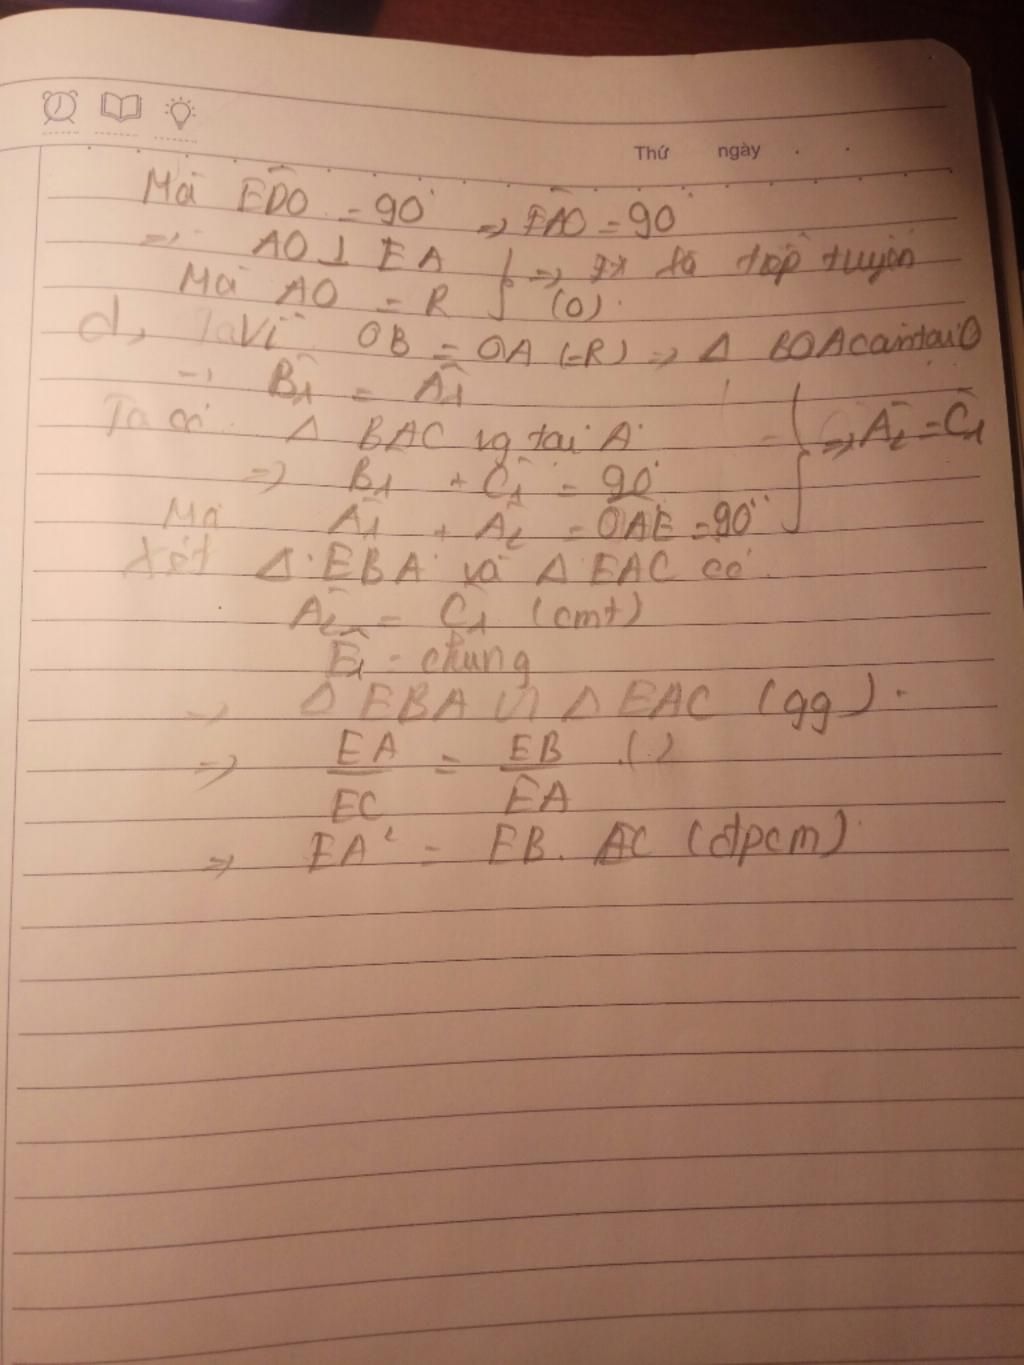 Thứ ngày
Mà EDO = 90° => EAO = 90°
=> AO ⊥ EA } => là tiếp tuyến
Mà AO = R (O).
d, Vì OB = OA (=R) => Δ BOA cân tại O
=> B1 = A1
Ta có Δ BAC vg tại A
=> B1 + C1 = 90° } => A2 = C1
Mà A1 + A2 = OAE = 90°
Xét Δ EBA và Δ EAC có
A2 = C1 (cmt)
E1 = chung
=> Δ EBA ∽ Δ EAC (gg).
=> EA/EC = EB/EA ()
=> EA² = EB. EC (đpcm)